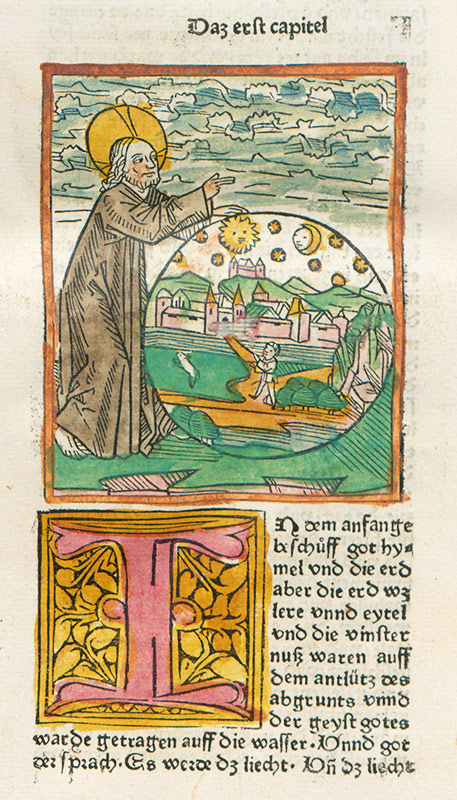 Daz erst capitel
In dem anfange
beschůff got hy-
mel vnd die erd
aber die erd wz
lere vnnd eytel
vnd die vinster
nuß waren auff
dem antlütz des
abgrunts vnnd
der geyst gotes
warde getragen auff die wasser. Vnnd got
der sprach. Es werde dz liecht. Vn̄ dz liecht